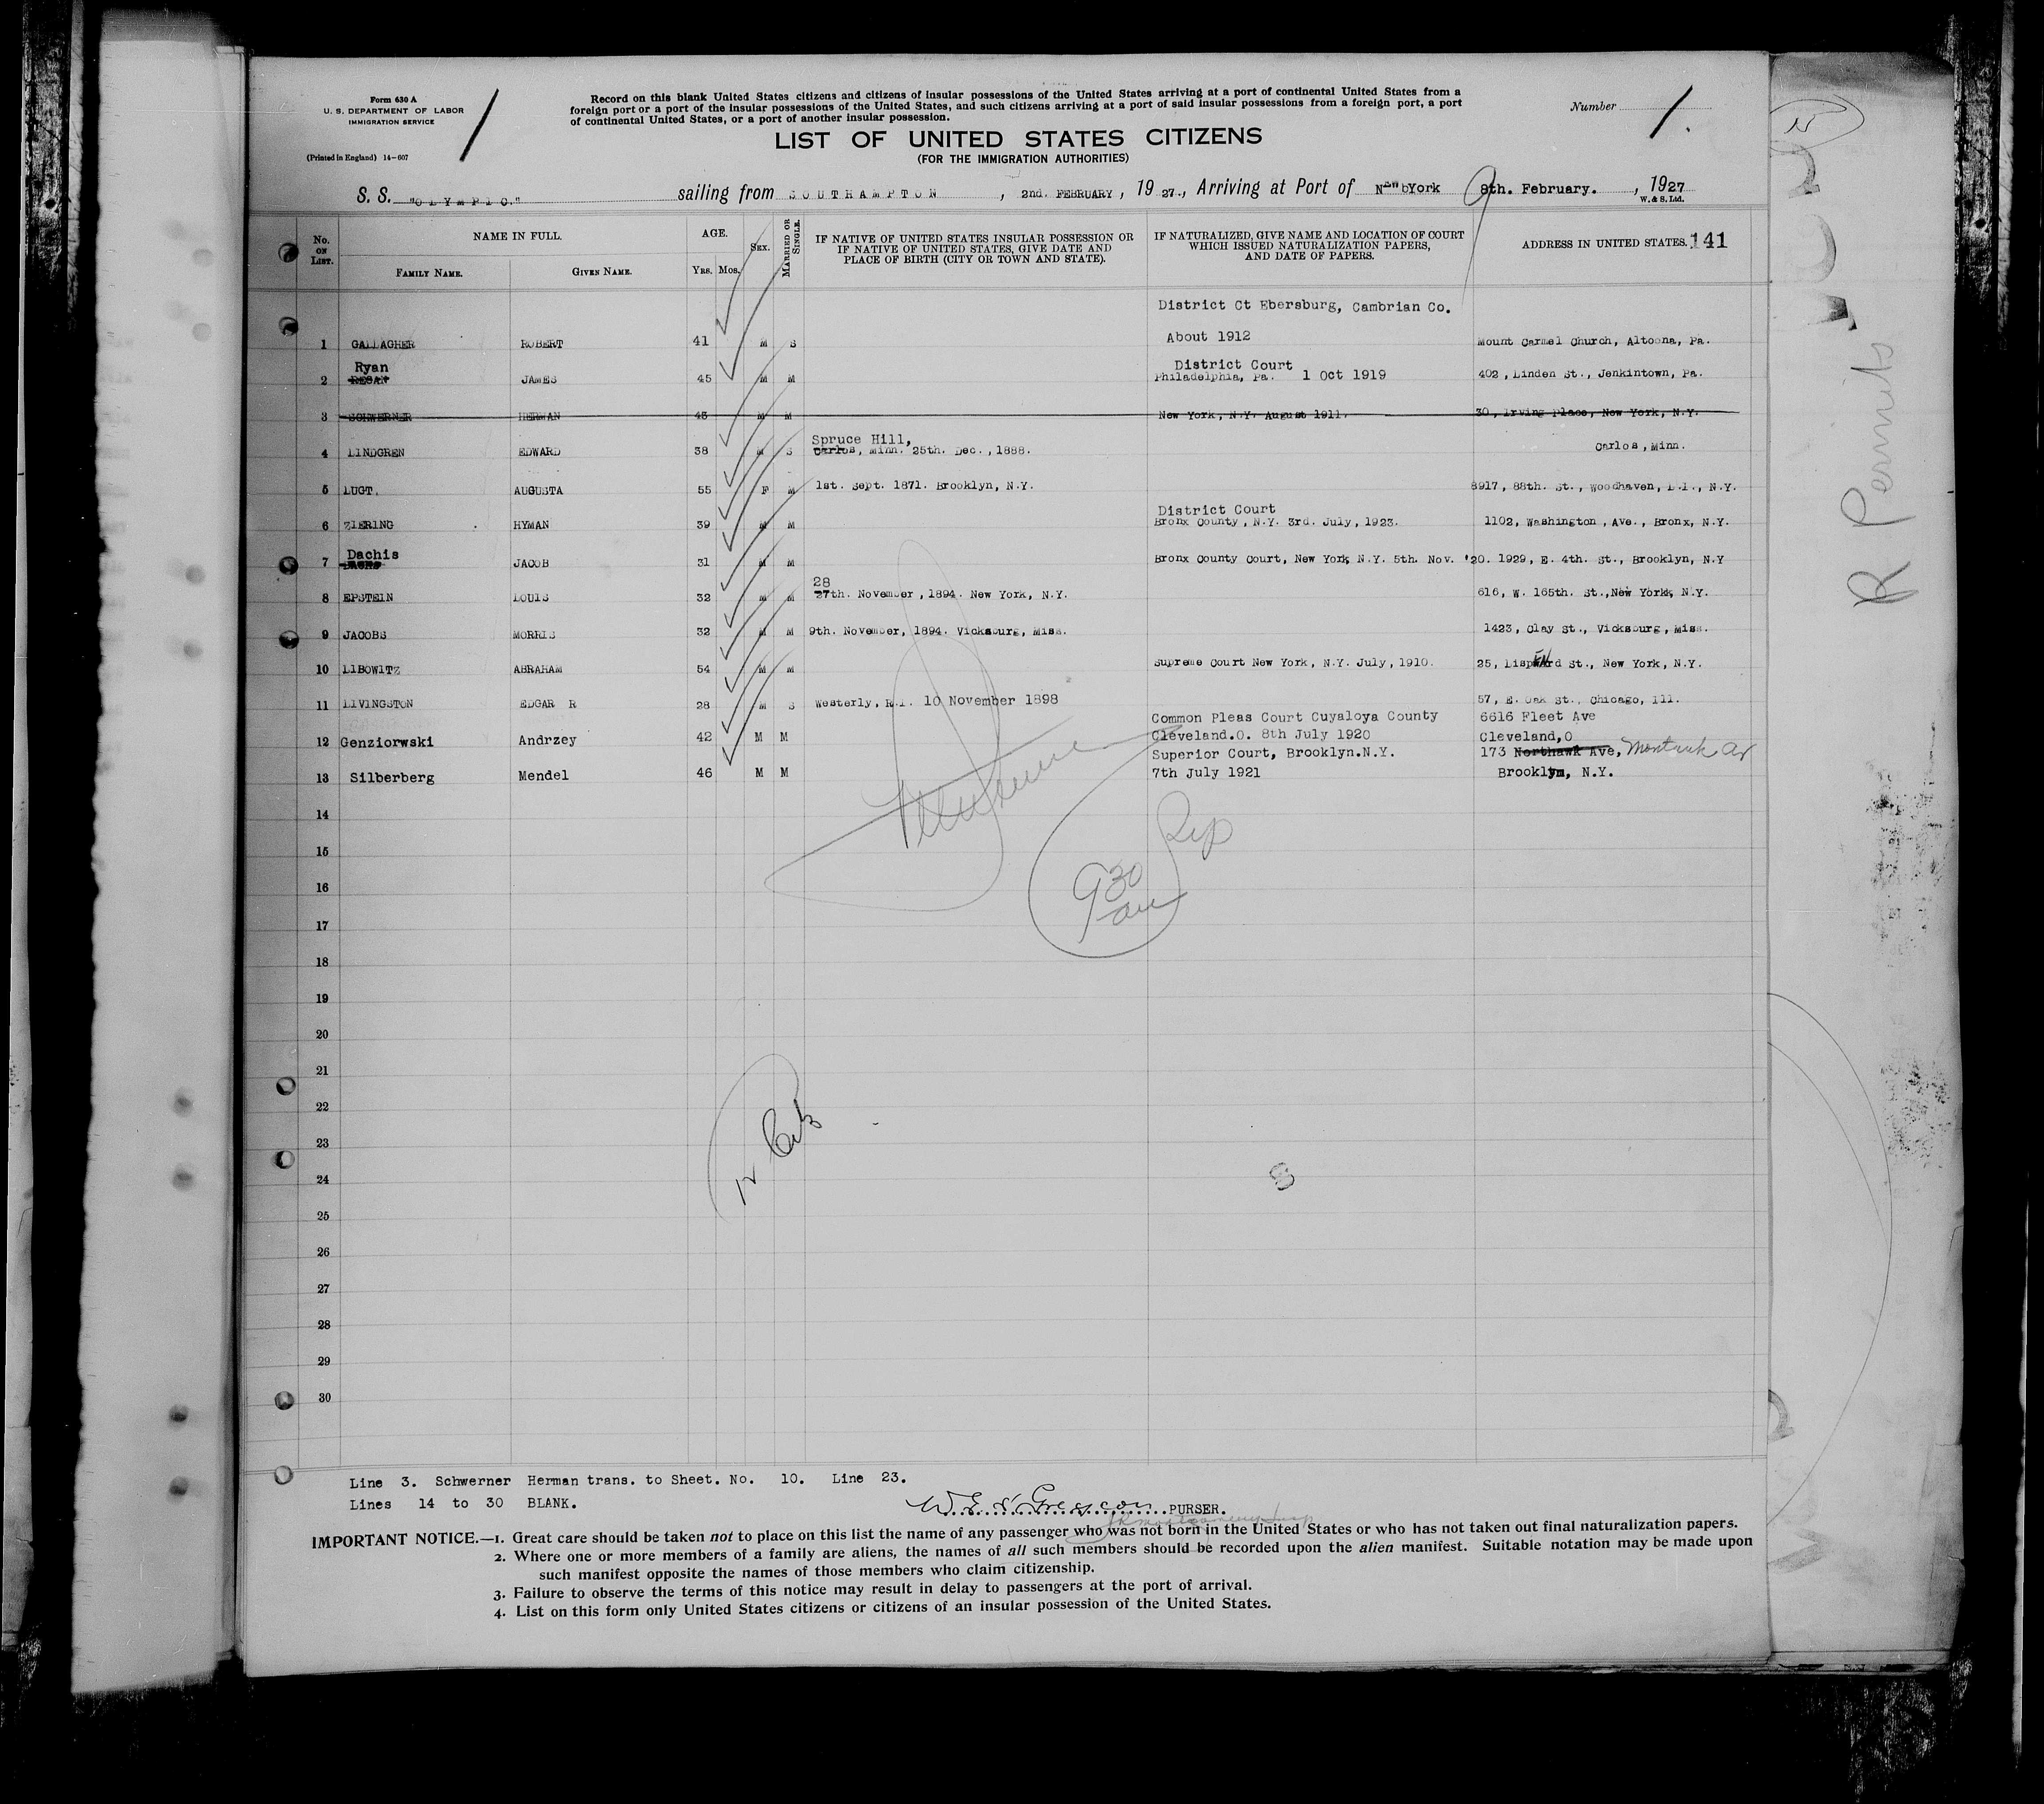 Form 630 A
U. S. DEPARTMENT OF LABOR
IMMIGRATION SERVICE
(Printed in England) 14-607
1
Record on this blank United States citizens and citizens of insular possessions of the United States arriving at a port of continental United States from a
foreign port or a port of the insular possessions of the United States, and such citizens arriving at a port of said insular possessions from a foreign port, a port
of continental United States, or a port of another insular possession.
Number 1.
LIST OF UNITED STATES CITIZENS
(FOR THE IMMIGRATION AUTHORITIES)
S. S. "OLYMPIC." sailing from SOUTHAMPTON, 2nd. FEBRUARY, 1927., Arriving at Port of New York 9th. February., 1927
W. & S. Ltd.
No. ON LIST. NAME IN FULL. AGE. SEX. MARRIED OR SINGLE. IF NATIVE OF UNITED STATES INSULAR POSSESSION OR IF NATIVE OF UNITED STATES, GIVE DATE AND PLACE OF BIRTH (CITY OR TOWN AND STATE). IF NATURALIZED, GIVE NAME AND LOCATION OF COURT WHICH ISSUED NATURALIZATION PAPERS, AND DATE OF PAPERS. ADDRESS IN UNITED STATES. 141
FAMILY NAME. GIVEN NAME. YRS. MOS.
District Ct Ebersburg, Cambrian Co.
1 GALLAGHER ROBERT 41 M S About 1912 Mount Carmel Church, Altoona, Pa.
Ryan District Court
2 REGAN JAMES 45 M M Philadelphia, Pa. 1 Oct 1919 402, Linden St., Jenkintown, Pa.
3 SCHWERNER HERMAN 43 M M New York, N.Y. August 1911. 30, Irving Place, New York, N.Y.
Spruce Hill,
4 LINDGREN EDWARD 38 M S Carlos, Minn. 25th. Dec., 1888. Carlos, Minn.
5 LUGT. AUGUSTA 55 F M 1st. Sept. 1871. Brooklyn, N.Y. 8917, 88th. St., Woodhaven, L.I., N.Y.
District Court
6 ZIERING HYMAN 39 M M Bronx County, N.Y. 3rd. July, 1923. 1102, Washington, Ave., Bronx, N.Y.
Dachis
7 JACOB 31 M M Bronx County Court, New York, N.Y. 5th. Nov. '20. 1929, E. 4th. St., Brooklyn, N.Y
28
8 EPSTEIN LOUIS 32 M M 27th. November, 1894. New York, N.Y. 616, W. 165th. St., New York, N.Y.
9 JACOBS MORRIS 32 M M 9th. November, 1894. Vicksburg, Miss. 1423, Clay St., Vicksburg, Miss.
10 LIBOWITZ ABRAHAM 54 M M Supreme Court New York, N.Y. July, 1910. 25, Lispenard St., New York, N.Y.
11 LIVINGSTON EDGAR R 28 M S Westerly, R.I. 10 November 1898 57, E. Oak St., Chicago, Ill.
Common Pleas Court Cuyaloya County 6616 Fleet Ave
12 Genziorwski Andrzey 42 M M Cleveland.O. 8th July 1920 Cleveland,O
Superior Court, Brooklyn.N.Y. 173 Northawk Ave, Montauk Av
13 Silberberg Mendel 46 M M 7th July 1921 Brooklyn, N.Y.
14
15
16
17
18
19
20
21
22
23
24
25
26
27
28
29
30
930
am
12 Cits
R Permits
Line 3. Schwerner Herman trans. to Sheet. No. 10. Line 23.
Lines 14 to 30 BLANK.
PURSER.
IMPORTANT NOTICE.—1. Great care should be taken not to place on this list the name of any passenger who was not born in the United States or who has not taken out final naturalization papers.
2. Where one or more members of a family are aliens, the names of all such members should be recorded upon the alien manifest. Suitable notation may be made upon
such manifest opposite the names of those members who claim citizenship.
3. Failure to observe the terms of this notice may result in delay to passengers at the port of arrival.
4. List on this form only United States citizens or citizens of an insular possession of the United States.